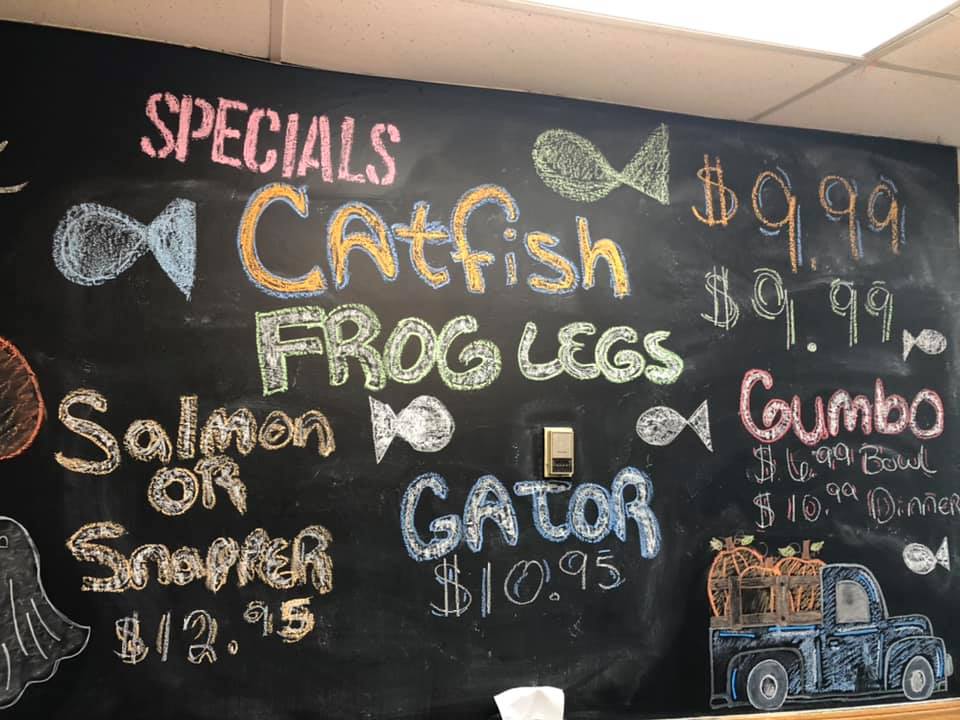 SPECIALS
Catfish $9.99
FROG LEGS $9.99
Salmon
OR
Snapper
$12.95
GATOR
$10.95
Gumbo
$6.99 Bowl
$10.99 Dinner